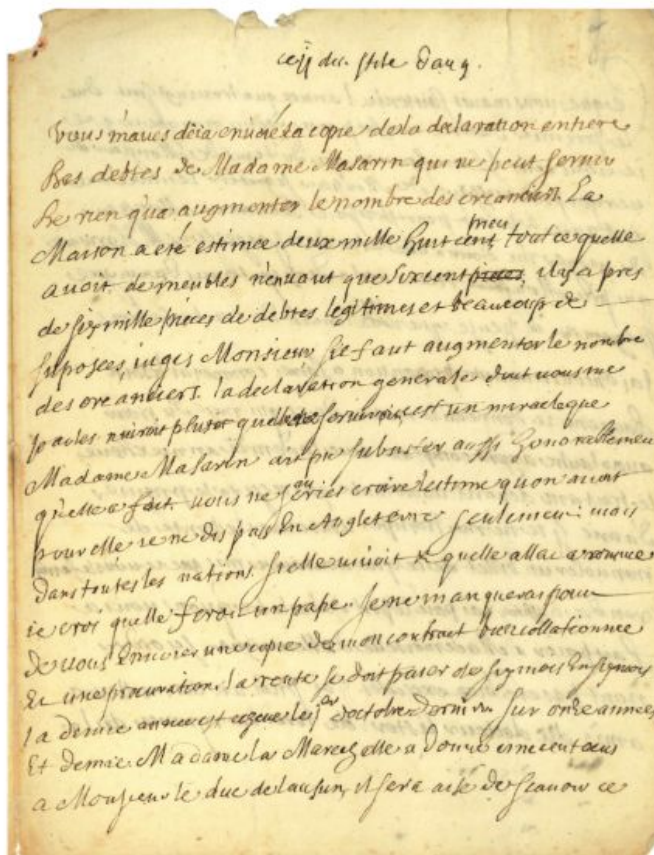 du stile dang.
Vous m'aves deia envoié la copie de la declaration entiere
des debtes de Madame Masarin qui ne peut servir
de rien qua augmenter le nombre des creanciers. La
Maison a eté estimée deux mille huit cent tout ce quelle
avoit de meubles n'en vaut que six cent pieces, il y a pres
de six mille pieces de debtes legitimes et beaucoup de
suposees, iugés Monsieur s'il faut augmenter le nombre
des creanciers. la declaration generale dont vous me
parles nuiroit plutot quelle ne serviroit, cest un miracle que
Madame Masarin ait pu subsister aussi honorablement
quelle a fait. vous ne sauries croire l'estime quon avoit
pour elle, ie ne dis pas En Angleterre seulement mais
dans toutes les nations. si elle vivoit & quelle allat a romme
ie croi quelle feroit un pape. Je ne manquerai pas
de vous Envoier une copie de mon contract collationnée
Et une procuration. la rente se doit paier de six mois En six mois
la demie année est echeue le 1er d'octobre dernier sur onze années
Et demie. Madame la Mareschalle a donné cinc cent ecus
a Monsieur le duc de lausun, il sera aisé de scavoir ce